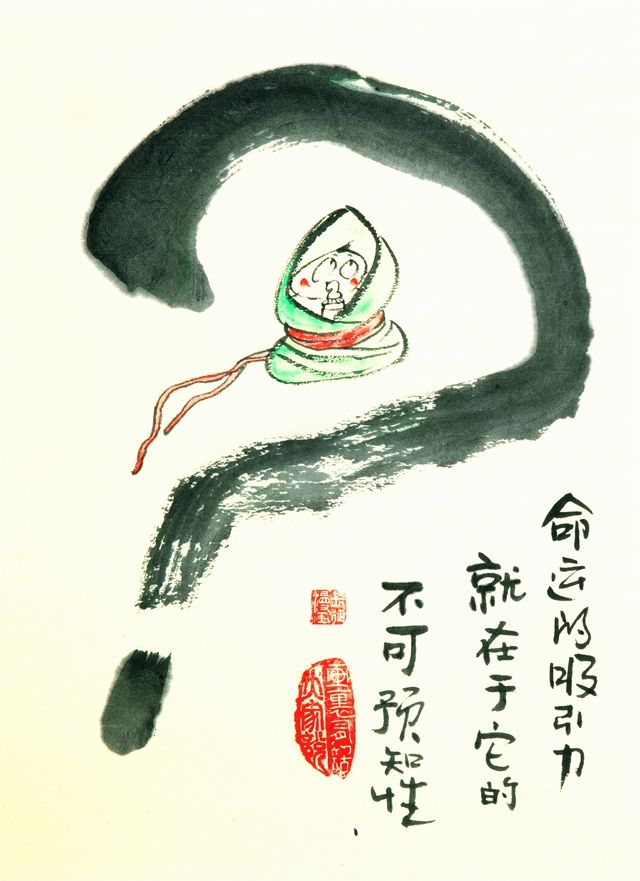 命运的吸引力
就在于它的
不可预知性